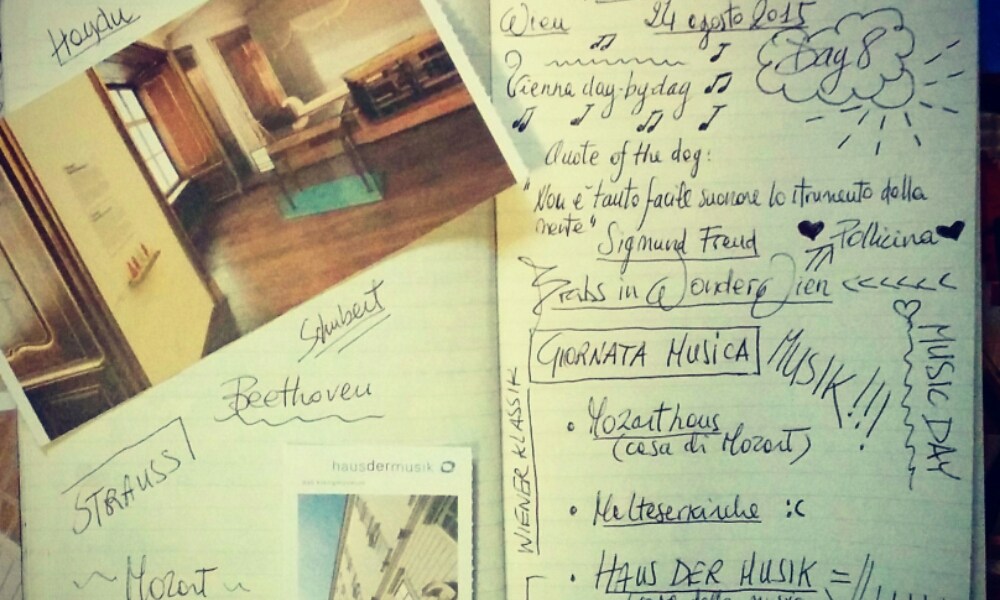 Haydn
Schubert
Beethoven
STRAUSS
Mozart
hausdermusik
Wien 24 agosto 2015
Day 8
Vienna day-by-day
Quote of the dog:
"Non è tanto facile suonare lo strumento della
mente"
Sigmund Freud
Pollicina
in WonderWien <<<<<<
GIORNATA MUSICA
MUSIK!!!
MUSIC DAY
WIENER KLASSIK
• Mozarthaus
(casa di Mozart)
• Malteserkirche :c
• HAUS DER MUSIK =